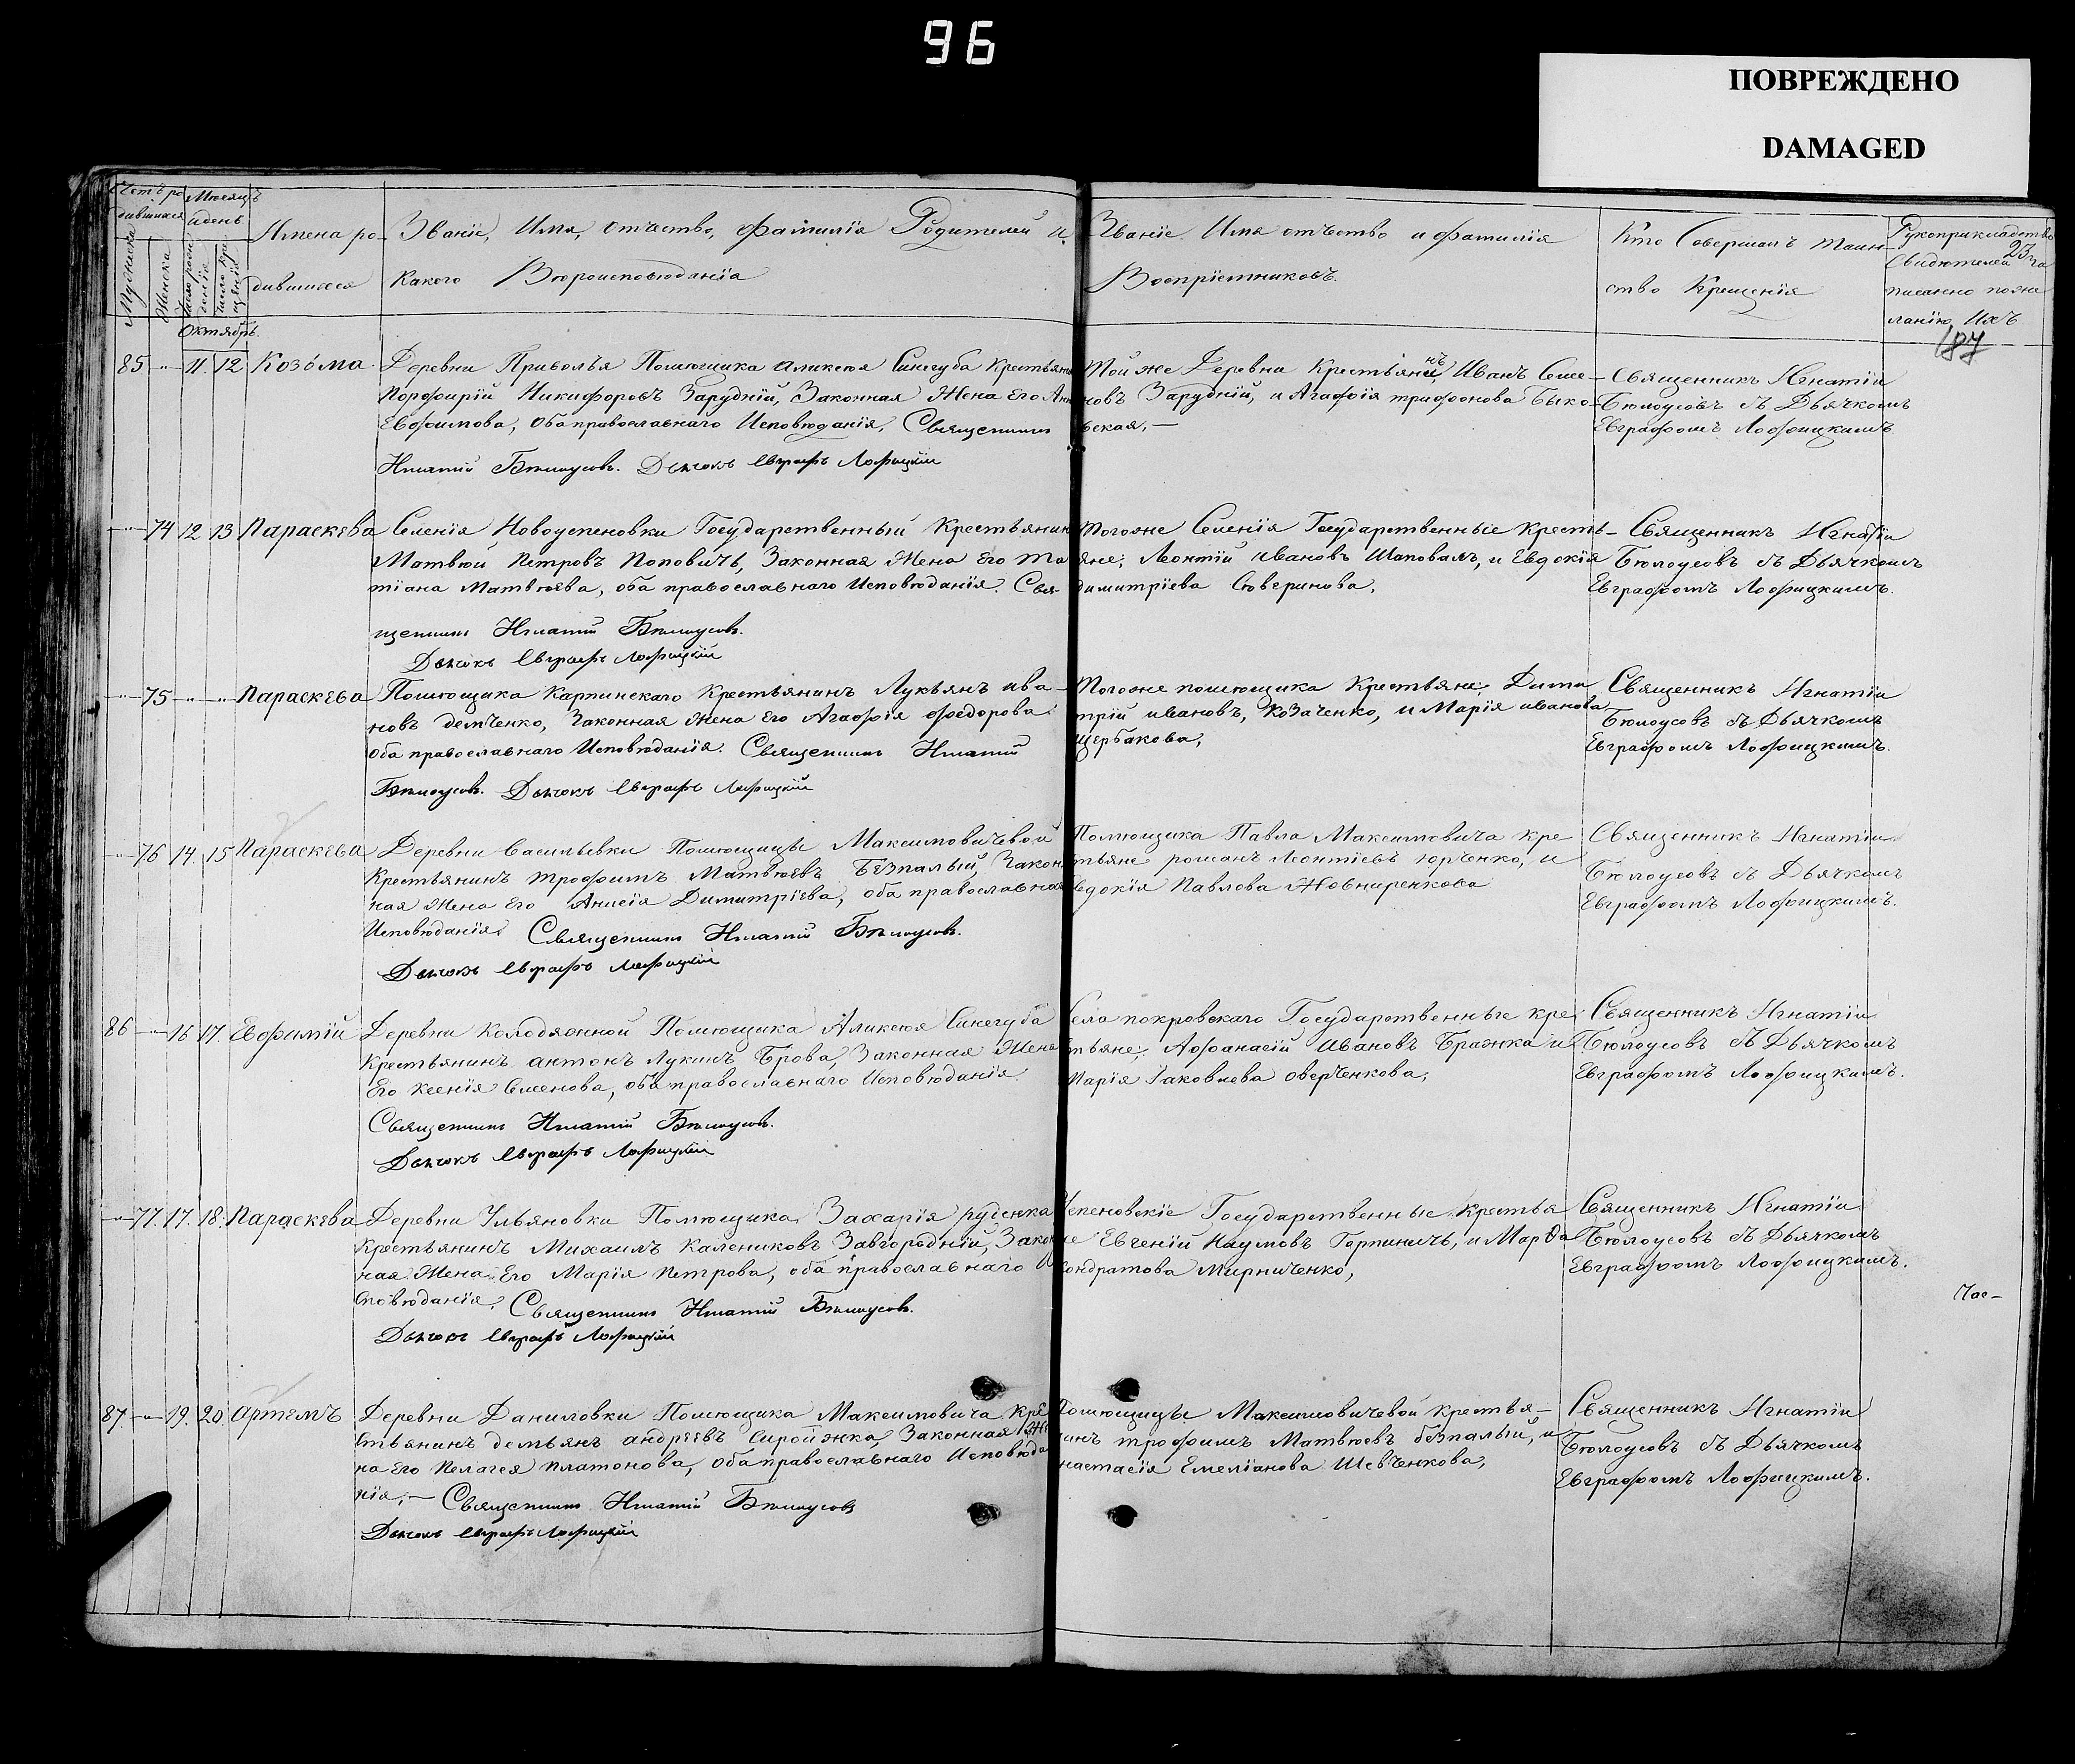 96
ПОВРЕЖДЕНО
DAMAGED
Счетъ ро
дившихся
Мѣсяцъ
и день
Мужеска
Женска
Число рож
денія
Число кре
щенія
Имена ро
дившихся
Званіе, Имя, отчество, фамилія Родителей и
Какого Вѣроисповѣданія
Званіе Имя отчество и фамилія
Воспріемниковъ.
Кто Совершалъ таин-
ство Крещенія
Рукоприкладство
Свидѣтелей за
писанно пожѣ
ланію Ихъ
187
Октябрь.
85 -"- 11. 12 Козьма. Деревни Приволья Помѣщика Аликсѣя Синегуба Крестьянинъ
Порфирій Никифоровъ Зарудній, Законная Жена Его Анна
Евфимова, оба православнаго Исповѣданія, Священникъ
Игнатій Бѣлоусовъ. Дьячокъ Евграфъ Лофицкій
Той же Деревни Крестьянинъ, Иванъ Семе-
новъ Зарудній, и Агафія трифонова Быко-
вская, —
Священникъ Игнатій
Бѣлоусовъ съ Дьячкомъ
Евграфомъ Лофицкимъ
-"- 74 12 13 Параскева Селенія Новоуспеновки Государственный Крестьянинъ
Матвѣй Петровъ Поповичъ, Законная Жена Его Та
тіана Матвѣева, оба православнаго Исповѣданія. Свя-
щенникъ Игнатій Бѣлоусовъ.
Дьячокъ Евграфъ Лофицкій
Того же Селенія Государственные Кресть-
яне; Леонтій ивановъ Шаповалъ, и Евдокія
димитріева Сѣверинова,
Священникъ Игнатіи
Бѣлоусовъ съ Дьячкомъ
Евграфомъ Лофицкимъ.
-"- 75 -"- -"- Параскева Помѣщика Карпинскаго Крестьянинъ Лукьянъ ива-
новъ демченко, Законная жена Его Агафія федорова
оба православнаго Исповѣданія. Священникъ Игнатій
Бѣлоусовъ. Дьячокъ Евграфъ Лофицкій
Того же помѣщика Крестьяне; Дими
трій ивановъ, Козаченко, и Марія иванова
Щербакова,
Священникъ Игнатіи
Бѣлоусовъ съ Дьячкомъ
Евграфомъ Лофицкимъ.
-"- 76 14. 15 Параскева Деревни Васильевки Помѣщицы Максимовичевой
Крестьянинъ трофимъ Матвѣевъ Безпалый, Закон
ная Жена Его Анисія Димитріева, оба православнаго
Исповѣданія. Священникъ Игнатій Бѣлоусовъ.
Дьячокъ Евграфъ Лофицкій
Помѣщика Павла Максимовича кре
стьяне романъ леонтіевъ юрченко, и
Евдокія Павлова Жовниренкова
Священникъ Игнатіи
Бѣлоусовъ съ Дьячкомъ
Евграфомъ Лофицкимъ.
86 -"- 16 17. Евфимій Деревни Колодязной Помѣщика Аликсѣя Синегуба
Крестьянинъ антонъ Лукинъ Брова, Законная Жена
Его ксенія Семенова, оба православнаго Исповѣданія.
Священникъ Игнатій Бѣлоусовъ.
Дьячокъ Евграфъ Лофицкій
Села покровскаго Государственные кре
стьяне; Афанасій Ивановъ Бражка и
Марія Іаковлева оверченкова,
Священникъ Игнатіи
Бѣлоусовъ съ Дьячкомъ
Евграфомъ Лофицкимъ.
-"- 77. 17. 18. Параскева Деревни Ульяновки Помѣщика Захарія руденка
Крестьянинъ Михаилъ Калениковъ Завгородній, Закон
ная Жена Его Марія Петрова, оба православнаго И
сповѣданія. Священникъ Игнатій Бѣлоусовъ.
Дьячокъ Евграфъ Лофицкій
Успеновскіе Государственные крестья
не Евгеній Наумовъ Горпиничъ, и Марфа
Кондратова Мирниченко,
Священникъ Игнатіи
Бѣлоусовъ съ Дьячкомъ
Евграфомъ Лофицкимъ.
87. -"- 19. 20. Артемъ Деревни Даниловки Помѣщика Максимовича. Кре
стьянинъ демьянъ андреевъ Сиройжка, Законная Же
на Его Пелагея платонова, оба православнаго Исповѣда
нія; — Священникъ Игнатій Бѣлоусовъ
Дьячокъ Евграфъ Лофицкій
Помѣщицы Максимовичевой крестья-
нинъ трофимъ Матвѣевъ безпалый, и
настасія Емеліанова Шевченкова,
Священникъ Игнатіи
Бѣлоусовъ съ Дьячкомъ
Евграфомъ Лофицкимъ.